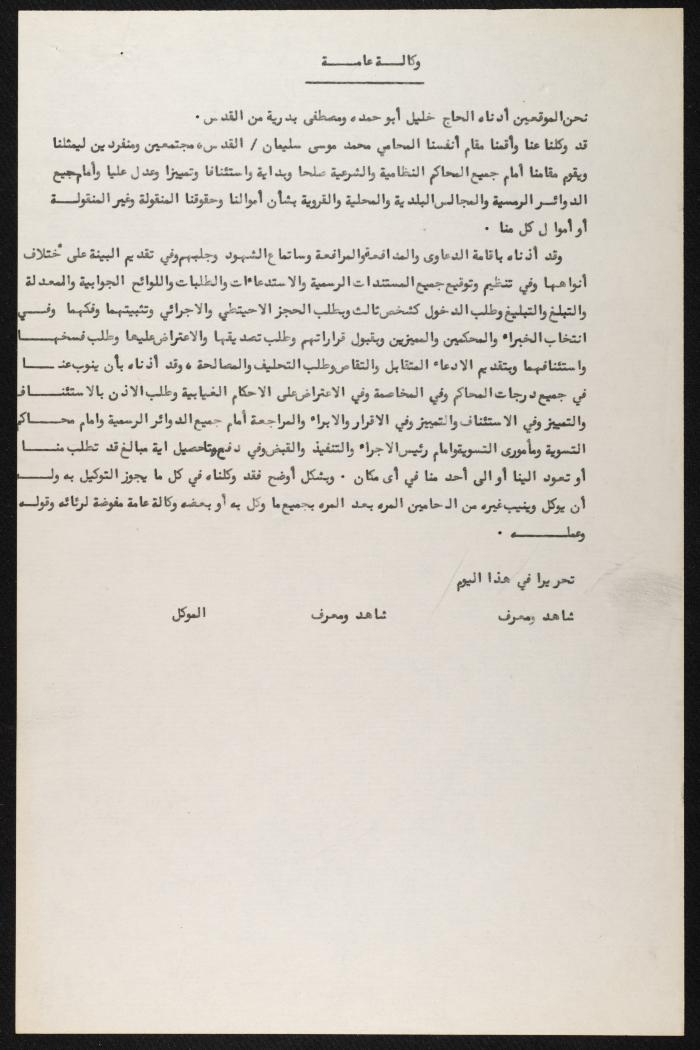 وكالة عامة
نحن الموقعين أدناه الحاج خليل أبو حمده ومصطفى بدرية من القدس .
قد وكلنا عنا وأقمنا مقام أنفسنا المحامي محمد موسى سليمان / القدس، مجتمعين ومنفردين ليمثلنا
ويقوم مقامنا أمام جميع المحاكم النظامية والشرعية صلحا وبداية واستئنافا وتمييزا وعدل عليا وأمام جميع
الدوائر الرسمية والمجالس البلدية والمحلية والقروية بشأن أموالنا وحقوقنا المنقولة وغير المنقولة
أو أموال كل منا .
وقد أذناه باقامة الدعاوى والمدافعة والمرافعة وساتماع الشهود وجلبهم وفي تقديم البينة على ختلاف
أنواهها وفي تنظيم وتوقيع جميع المستندات الرسمية والاستدعاءات والطلبات واللوائح الجوابية والمعدلة
والتبلغ والتبليغ وطلب الدخول كشخص ثالث وبطلب الحجز الاحيتطي والاجرائي وتثبيتهما وفكهما وفي
انتخاب الخبراء والمحكمين والمميزين وبقبول قراراتهم وطلب تصديقها والاعتراض عليها وطلب فسخها
واستئنافهما وبتقديم الادعاء المتقابل والتقاص وطلب التحليف والمصالحة ، وقد أذناه بأن ينوب عنا
في جميع درجات المحاكم وفي المخاصمة وفي الاعتراض على الاحكام الغيابية وطلب الاذن بالاستئناف
والتمييز وفي الاستئناف والتمييز وفي الاقرار والابراء والمراجعة أمام جميع الدوائر الرسمية وامام محاكم
التسوية ومأمورى التسوية وامام رئيس الاجراء والتنفيذ والقبض وفي دفع وتاحصيل اية مبالغ قد تطلب منا
أو تعود الينا أو الى أحد منا في أى مكان . وبشكل أوضح فقد وكلناه في كل ما يجوز التوكيل به وله
أن يوكل وينيب غيره من الحامين المره بعد المره بجميع ما وكل به أو بعضه وكالة عامة مفوضة لرئائه وقوله
وعمله .
تحريرا في هذا اليوم
شاهد ومعرف شاهد ومعرف الموكل